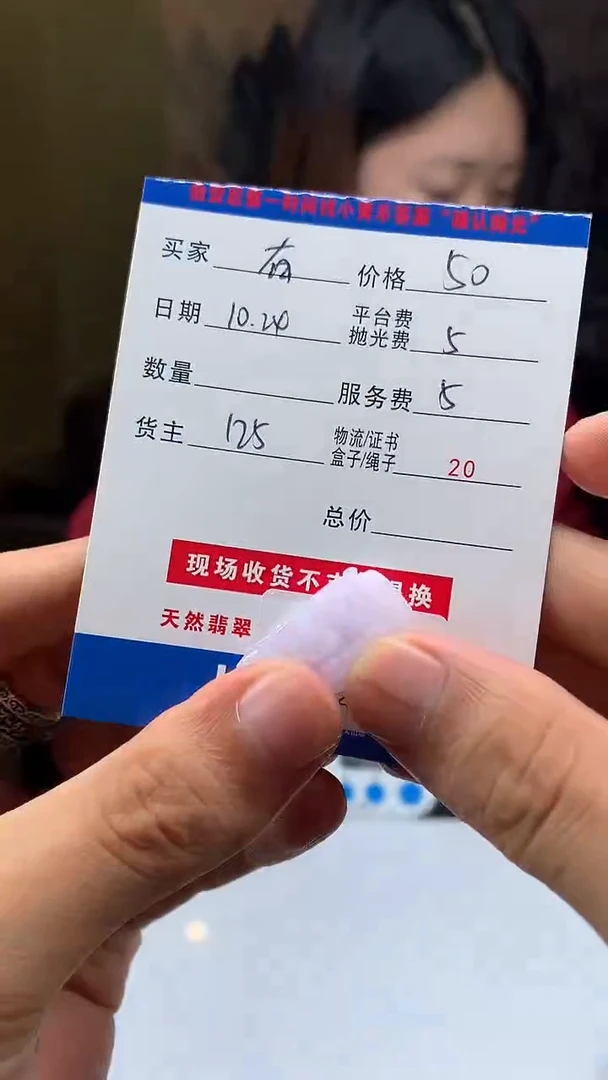 买家 价格 50
日期 10.24 平台费
抛光费 5
数量 服务费 5
货主 125 物流/证书
盒子/绳子 20
总价
现场收货不 换
天然翡翠